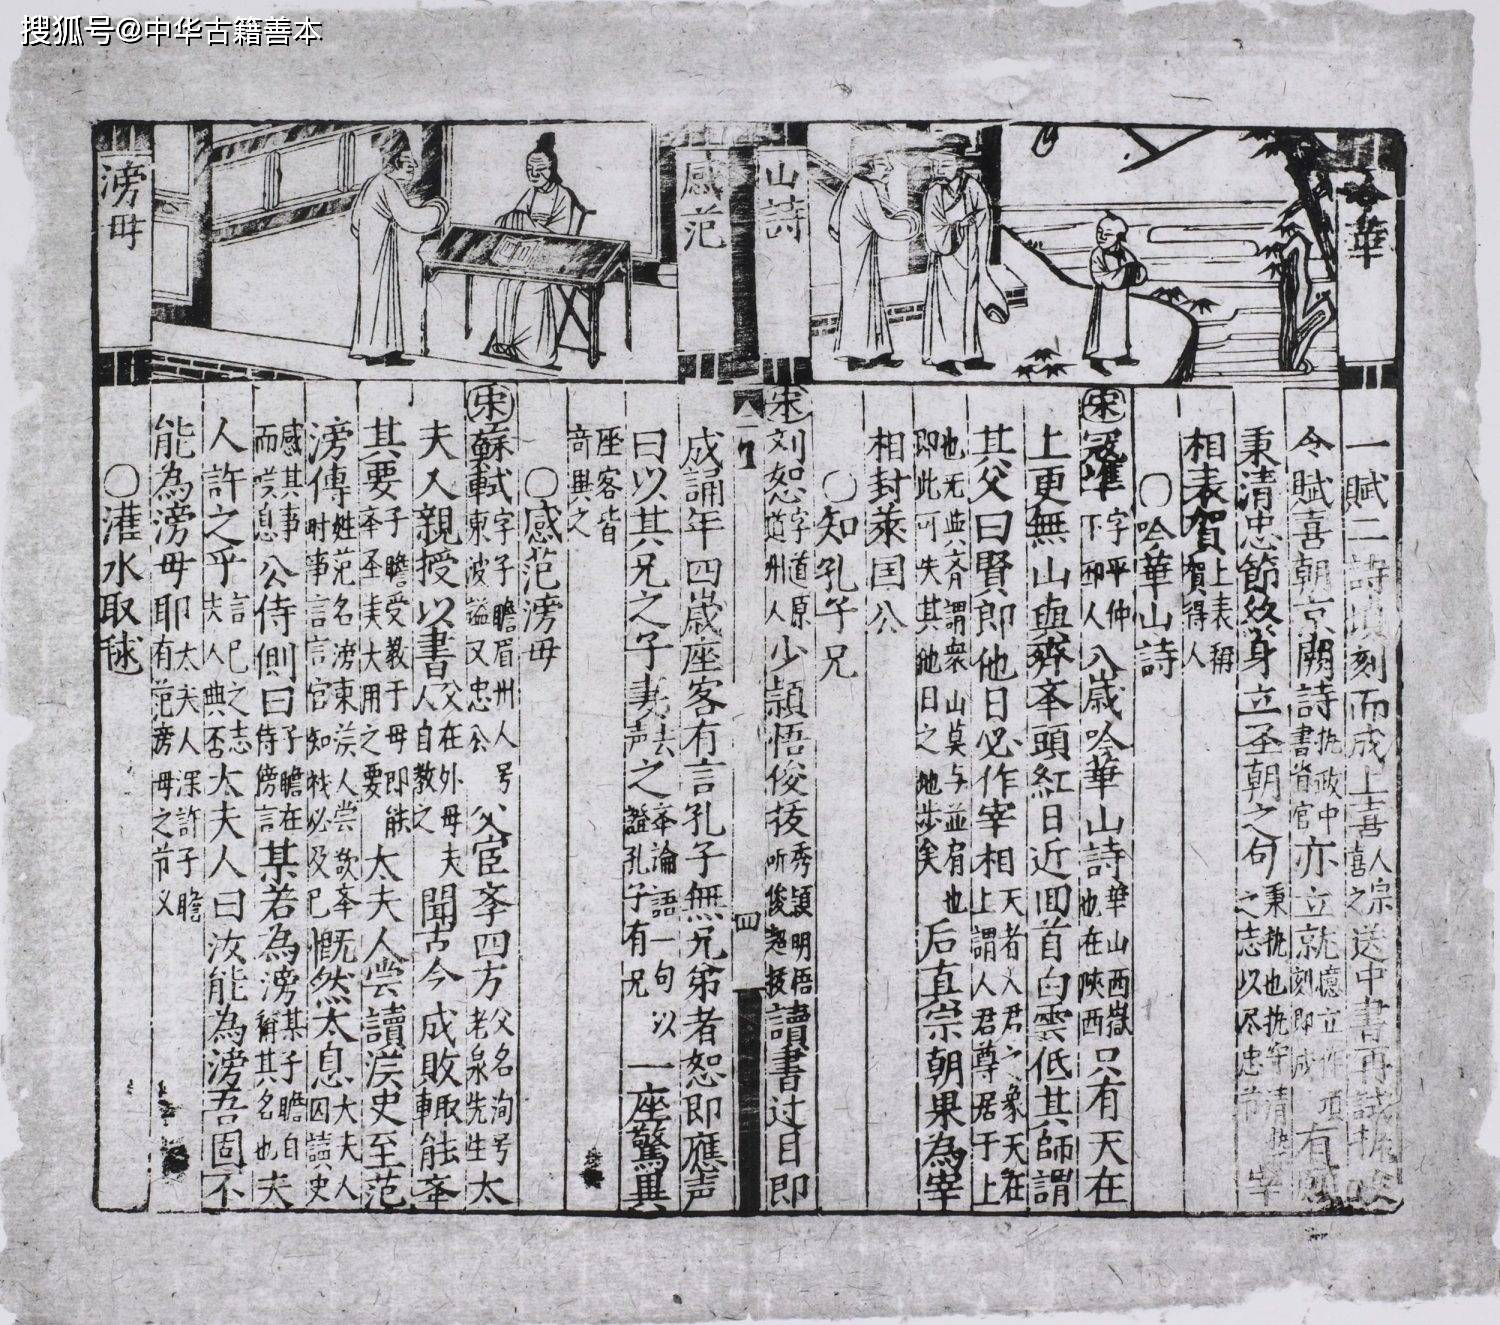 搜狐号@中华古籍善本
華
山詩
感范
滂母
一賦二詩頃刻而成上喜人宗喜之送中書再試
令賦喜朝京闕詩抚政中書省官亦立就憶立作頃刻即成有
秉清忠節終身立圣朝之句秉执也执守清之志以尽忠节宰
相表賀上表称賀得人
〇吟華山詩
宋冦準字平仲下邽人八歲吟華山詩華山西嶽也在陝西只有天在
上更無山與齊峯頭紅日近回首白雲低其師謂
其父曰賢郎他日必作宰相天者人君之象天在上謂人君尊居于上
也无與齐謂衆山莫与並肩也即此可失其他日之地步矣后真宗朝果為宰
相封萊国公
〇知孔子兄
宋刘恕字道原道州人少頴悟俊拔秀頴明悟所俊超拔讀書过目即
四
成誦年四歲座客有言孔子無兄弟者恕即應声
曰以其兄之子妻去声之本論語一句以證孔子有兄一座驚異
座客皆竒異之
〇感范滂母
宋蘇軾字子瞻眉州人号東波謚文忠公父宦斈四方父名洵号老泉先生太
夫人親授以書父在外母夫人自教之聞古今成敗輙能举
其要子瞻受教于母即能举圣美大用之要太夫人尝讀汉史至范
滂傳姓范名滂東汉人尝欲举时事言言官知戕必及已慨然太息大夫人因讀史
感其事而叹息公侍側曰子瞻在侍傍言某若為滂某子瞻自称其名也夫
人許之乎言已之志夫人典否太夫人曰汝能為滂吾固不
能為滂母耶太夫人深許子瞻有范滂母之节义
〇灌水取毬